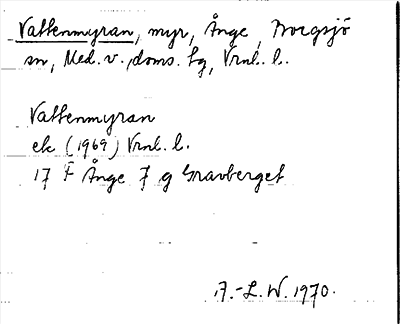 Vattenmyran, myr, Ånge, Borgsjö
sn, Med. v. doms. tg, Vrnl. l.
Vattenmyran
ek (1969) Vrnl. l.
17 F Ånge 7 g Gravberget
A.-L. W. 1970.